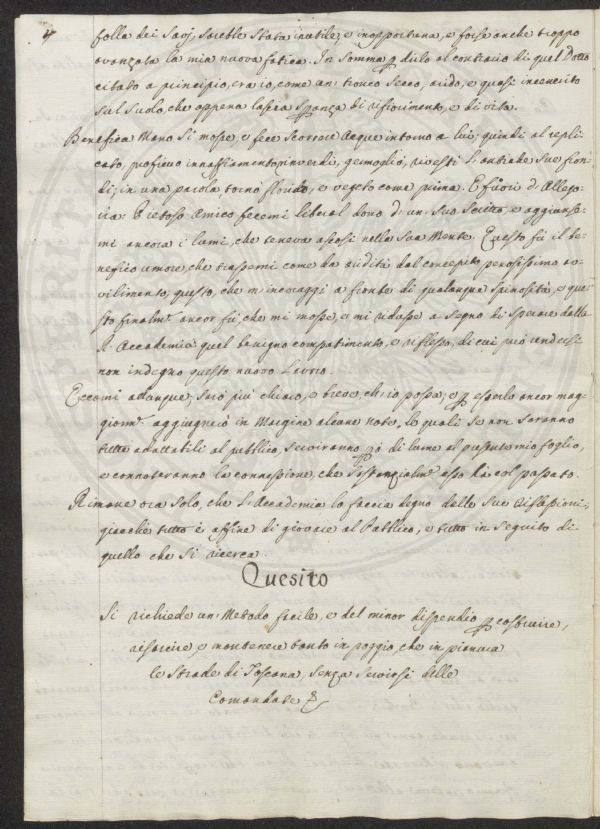 folla dei Savj, sarebbe stata inutile, e inopportuna, e forse anche troppo
avanzata la mia nuova fatica. In somma p dirlo al contrario di quel Dotto
citato a principio, era io, come un tronco secco, arido, e quasi incenerito
sul suolo, che appena lascia speranza di rifiorimento, e di vita.
Benefica Mano si mosse, e fece scorrere Acque intorno a lui; quindi al repli-
cato, proficuo innaffiamento rinverdì, germogliò, rivestì l'antiche sue fron-
di; in una parola tornò florido, e vegeto come prima. E fuori d'Allego-
ria: Pietoso Amico fecemi liberal dono d'un suo Scritto, e aggiunse-
mi ancora i lumi, che teneva ascosi nella sua Mente. Questo fù il be-
nefico umore, che trassemi come da aridità dal concepito penosissimo av-
vilimento; questo, che m'incoraggì a fronte di qualunque spinosità, e que-
sto finalm.e ancor fù, che mi mosse, e mi ridusse a segno di sperare dalla
R. Accademia quel benigno compatimento, e riflesso, di cui può rendersi
non indegno questo nuovo Lavoro.
Eccomi adunque; sarò più chiaro, e breve, ch'io possa; e p esserlo ancor mag-
giorm.e aggiugnerò in Margine alcune Note, le quali se non saranno
tutte adattabili al pubblico, serviranno però di lume al presente mio foglio,
e connoteranno la connessione, che sostanzialm.e esso hà col passato.
Rimane ora solo, che l'Accademia lo faccia degno delle sue riflessioni,
giacchè tutto è affine di giovare al Pubblico, e tutto in seguito di
quello che si ricerca.
Quesito
Si richiede un Metodo facile, e del minor dispendio p costruire,
risarcire, e mantenere tanto in poggio, che in pianura
le Strade di Toscana, senza servirsi delle
Comandate